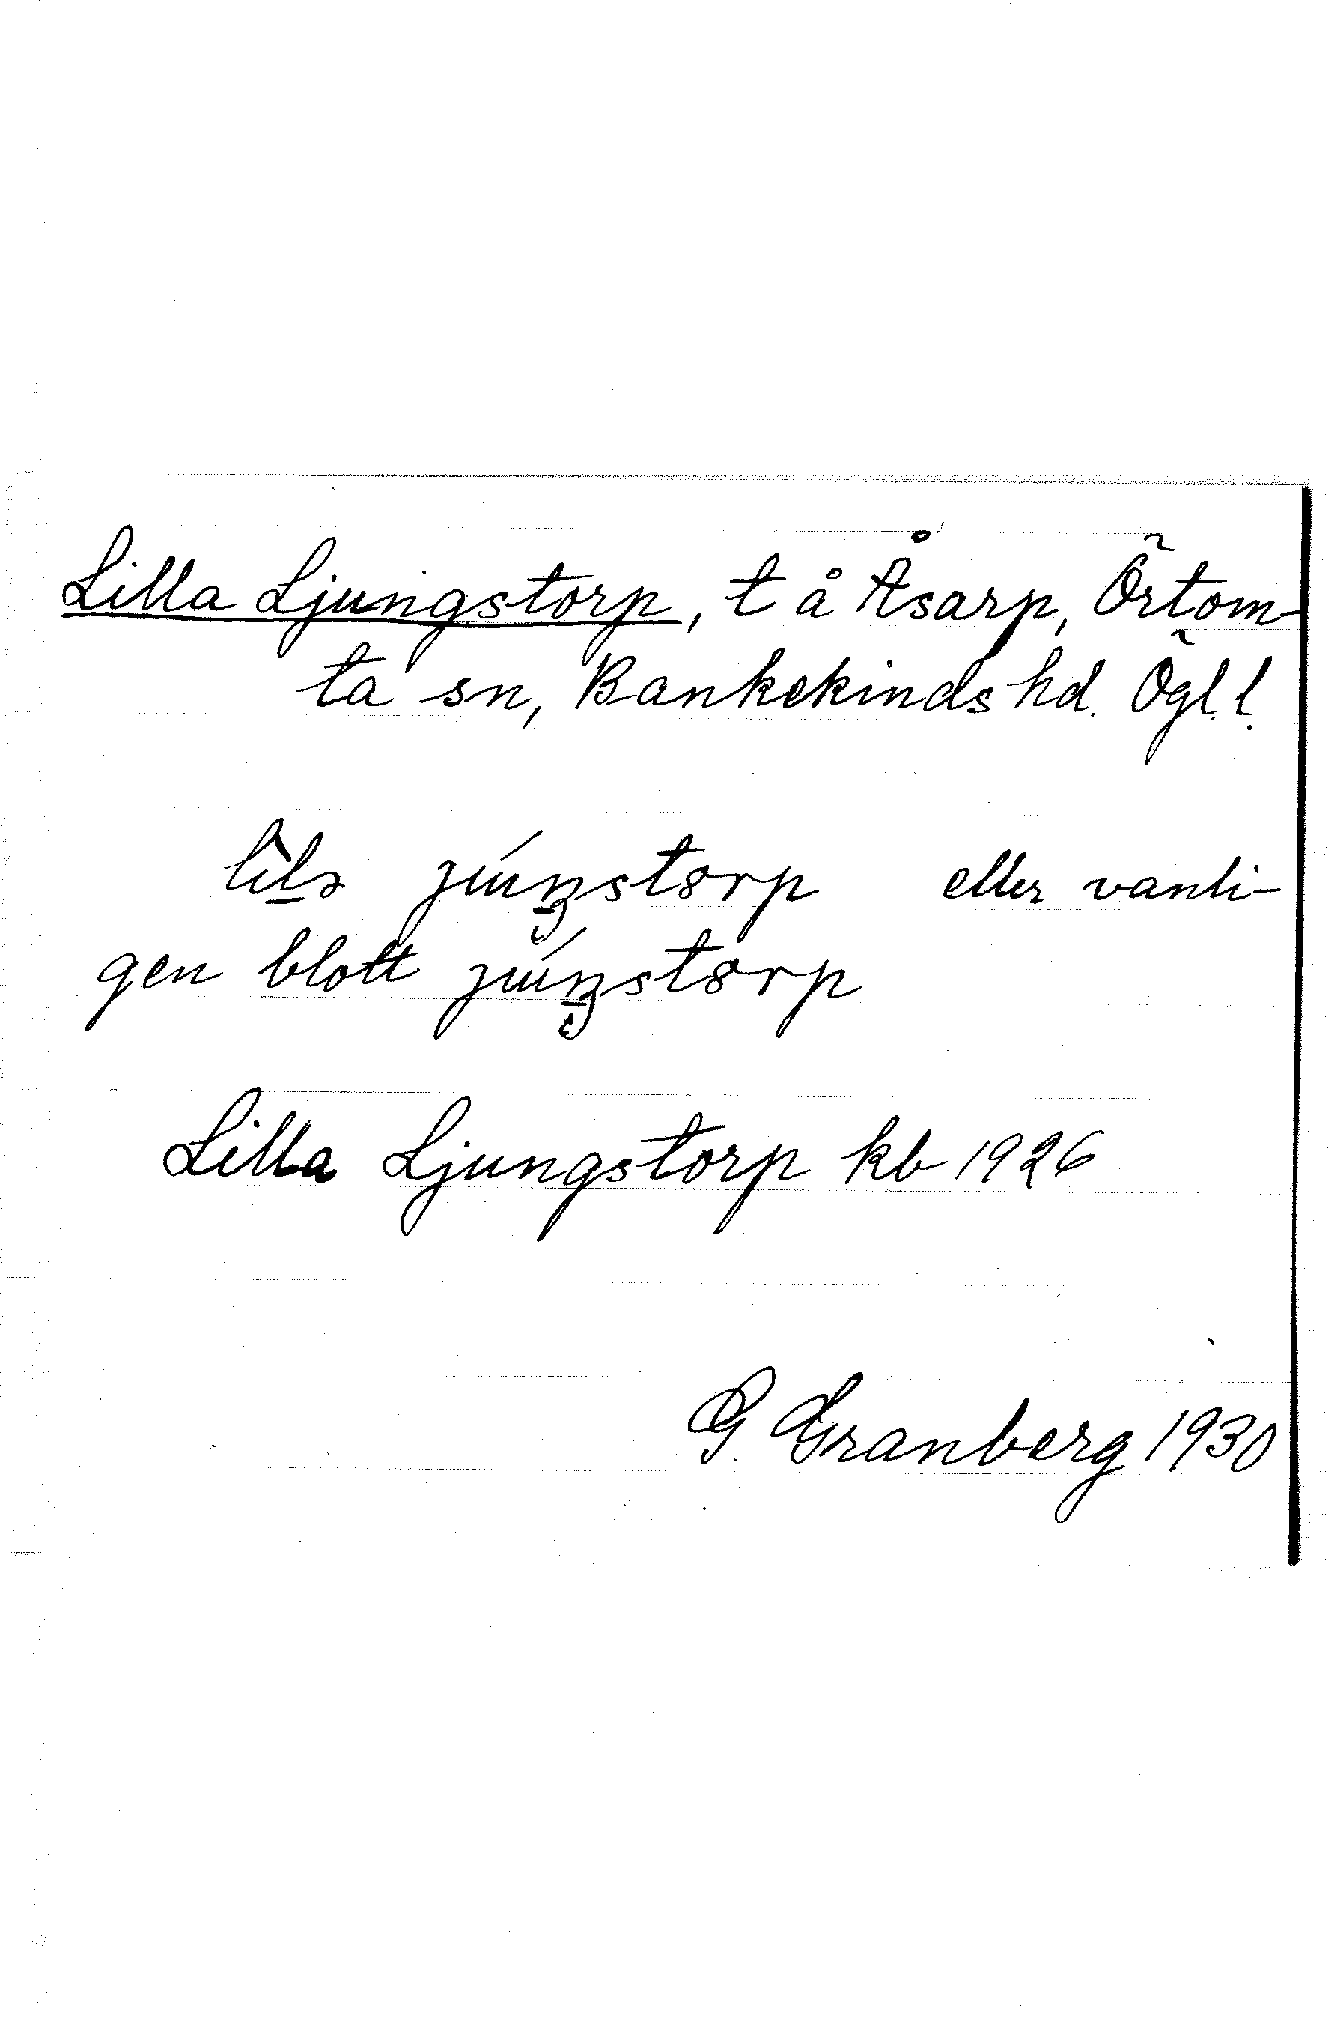 Lilla Ljungstorp, t å Åsarp, Örtom-
ta sn, Bankekinds hd. Ögl. l.
eller vanli-
gen blott
Lilla Ljungstorp kb 1926
G. Granberg 1930